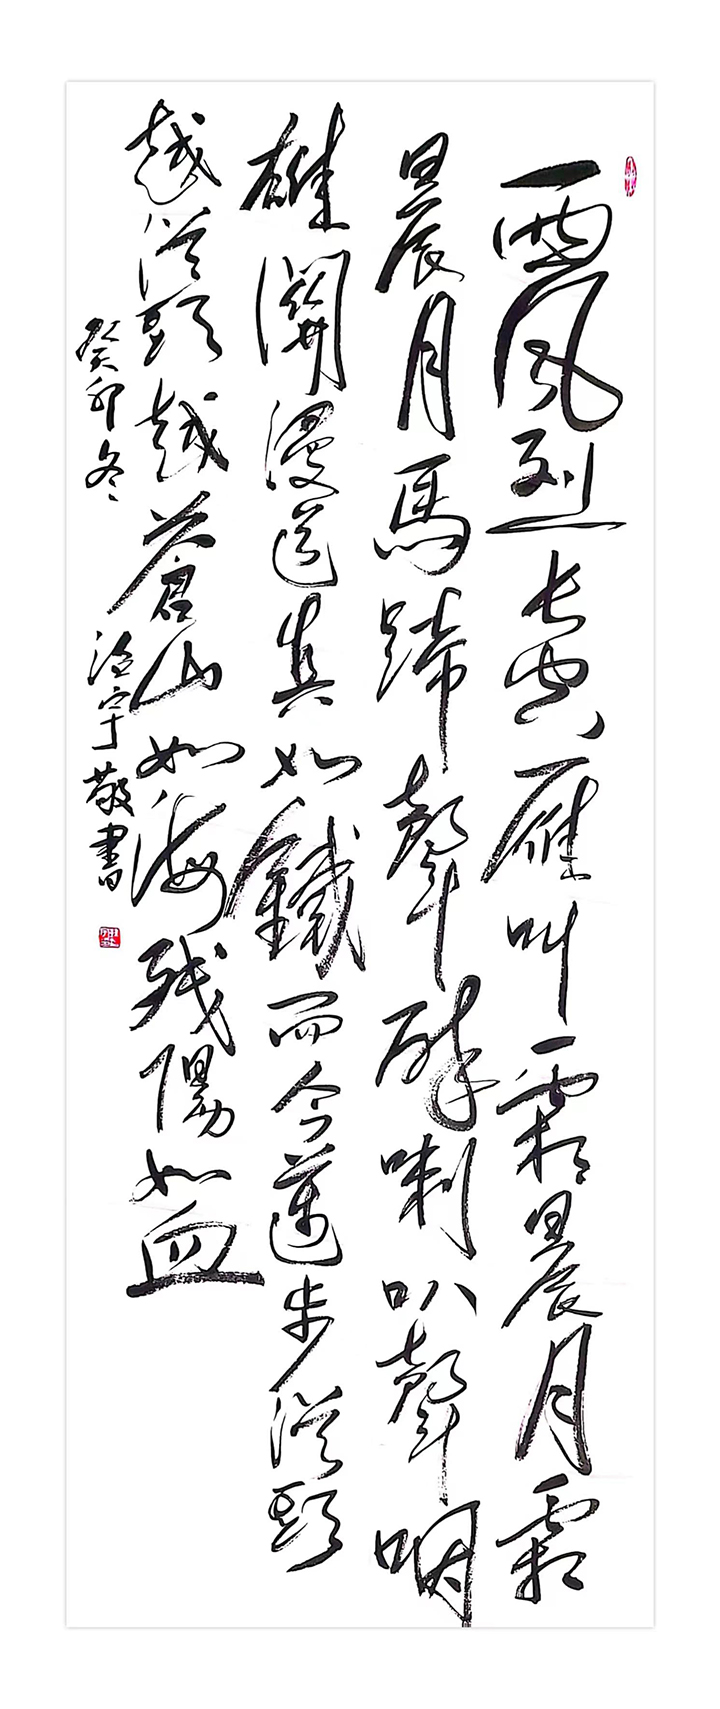 西風烈長空雁叫霜晨月霜
晨月馬蹄聲碎喇叭聲咽
雄關漫道真如鐵而今邁步從頭
越從頭越蒼山如海残陽如血
癸卯冬 敬書